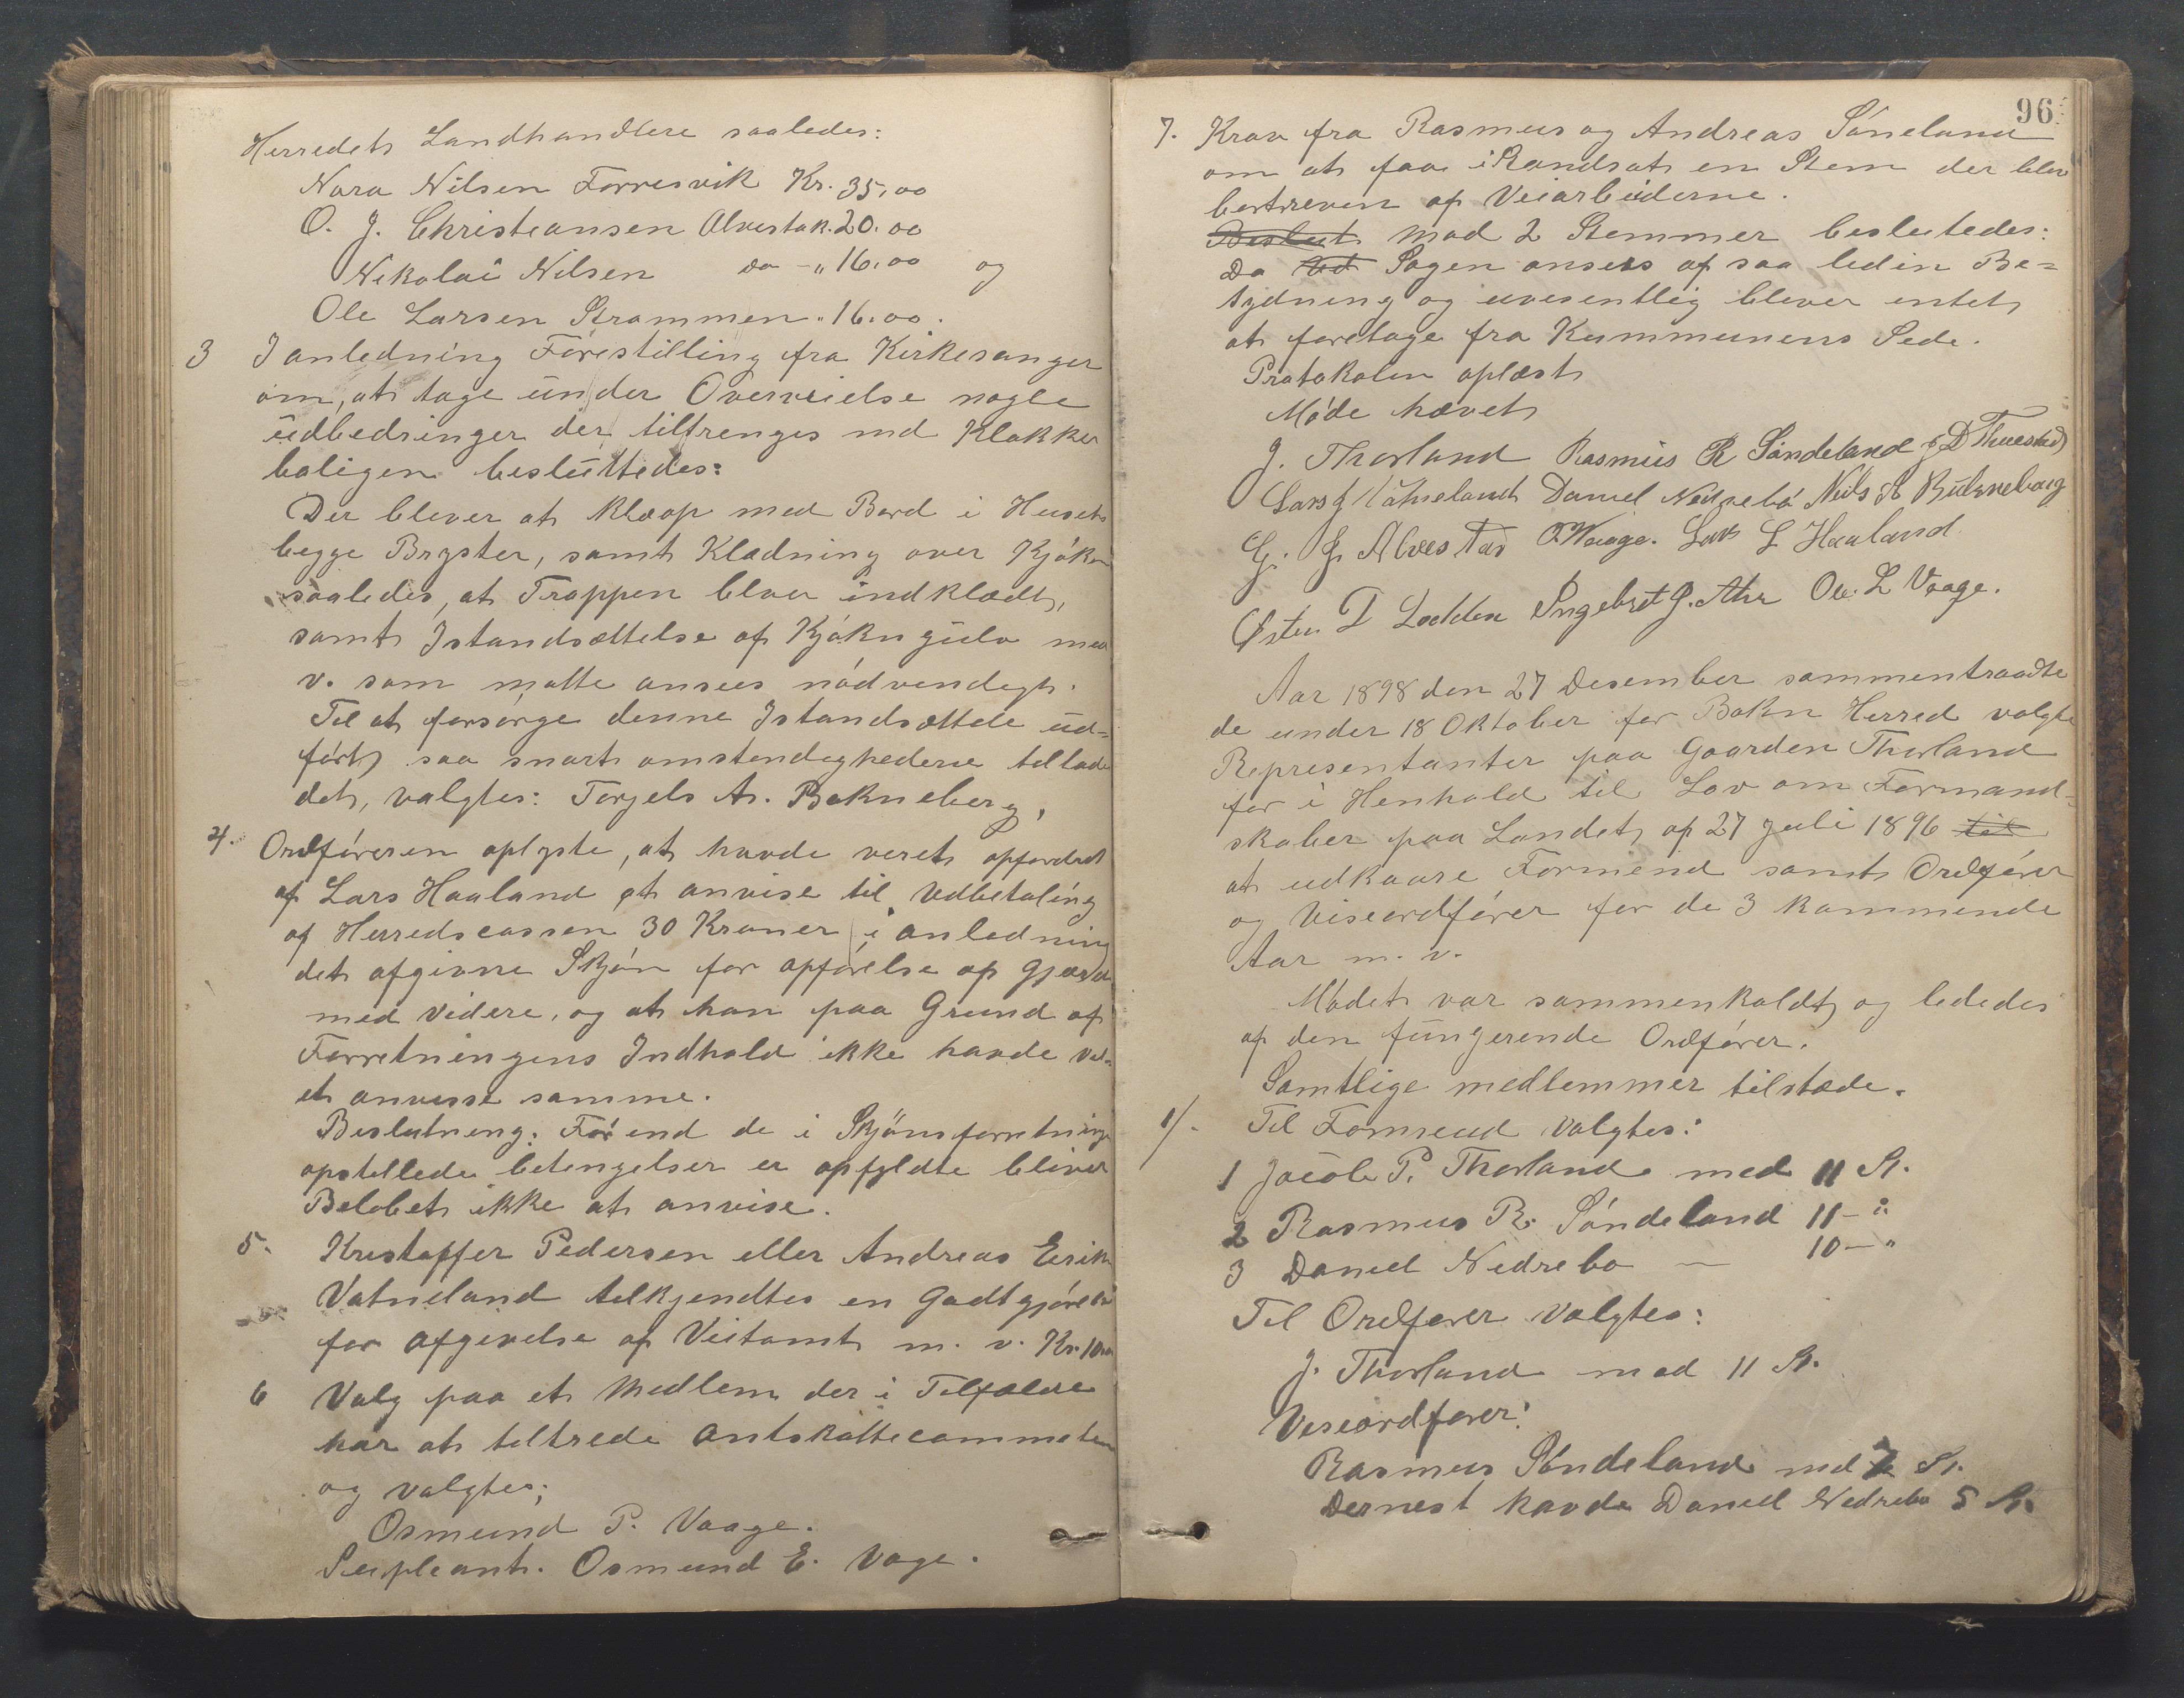 Herredets Landhandlere saaledes:
Nara Nilsen Forresvik Kr. 35,00
O. J. Christeansen Alvestak. 20.00
Nikolai Nilsen do - " 16.00 og
Ole Larsen Strammen " 16.00.
3 I anledning Forestilling fra Kirkesanger
om, at tage under Overveielse nogle
üdbedringer der tiltrenges med Klokker
boligen beslüttedes:
Der blever at klæop med Bord i Husets
begge Bryster, samt Klædning over Kjøken
saaledes, at Trappen blver indklædt,
samt Istandsættelse af Kjøkngülv med
v. som matte ansees nødvendegt.
Tel at forsørge denne Istandsættde üd=
ført saa snart omstendeghederne tellade
det, valgtes: Torgels As. Bokneberg,
4. Ordføreren oplyste, at havde veret opfordret
af Lars Haaland at anvise til Udbetaling
af Herredscassen 30 Kroner i anledning
det afgivne Skjøn for opførelse af Gjærde
med videre, og at han paa Grund af
Forretningens Indhold ikke havde vel-
et anvisse samme.
Beslutning: Før end de i Skjønsforretninge
opstellede betengelser er opfyldte bliver
Beløbet ikke at anvise.
5. Kristoffer Pedersen eller Andreas Eerik
Vatneland telkjendtes en Godtgjørelse
for Afgivelse af Veitomt m. v. Kr. 10,00
6 Valg paa et Medlem der i Telfælde
har at teltrede Amtskattecommeteen
og valgtes;
Osmund P. Vaage.
Supleant. Osmund E. Vage.
96
7. Krav fra Rasmus og Andreas Søneland
om at faa i Randsat en Stem der blev
bertreven af Veiarbeiderne.
Beslut Mod 2 Stemmer besluttedes:
Da Ved Sagen ansees af saa leden Be=
tydning og uvesentlig blever intet
at foretage fra Kummunens Sede.
Protokolen oplæst
Møde hævet
J. Thorland Rasmus R Søndeland J D Thuestad
Lars J Vatneland Daniel Nedrebø Neils A Buknebærg
G. J. Alvestad O Waage. Lars L Haaland
Østen T Lodden Ingebret J. Are Ole. L Vaage.
Aar 1898 den 27 Desember sammentraadte
de under 18 Oktober for Bokn Herred valgte
Representanter paa Gaarden Thorland
for i Henhold til Lov om Formand=
skaber paa Landet af 27 Juli 1896 til
at udkaare Formend samt Ordfører
og Viseordfører for de 3 kommende
Aar m. v.
Mødet var sammenkaldt og lededes
af den fungerende Ordfører.
Samtlige medlemmer tilstæde.
1/. Til Formend valgtes:
1 Jacob P. Thorland med 11 St.
2 Rasmus R. Søndeland 11 - "
3 Daneel Nedrebo — 10 - "
Tel Ordfører valgtes:
J. Thorland med 11 St.
Veseordfører:
Rasmus Søndeland med 7 St.
Dernest havde Daneel Nedrebø 5 St.